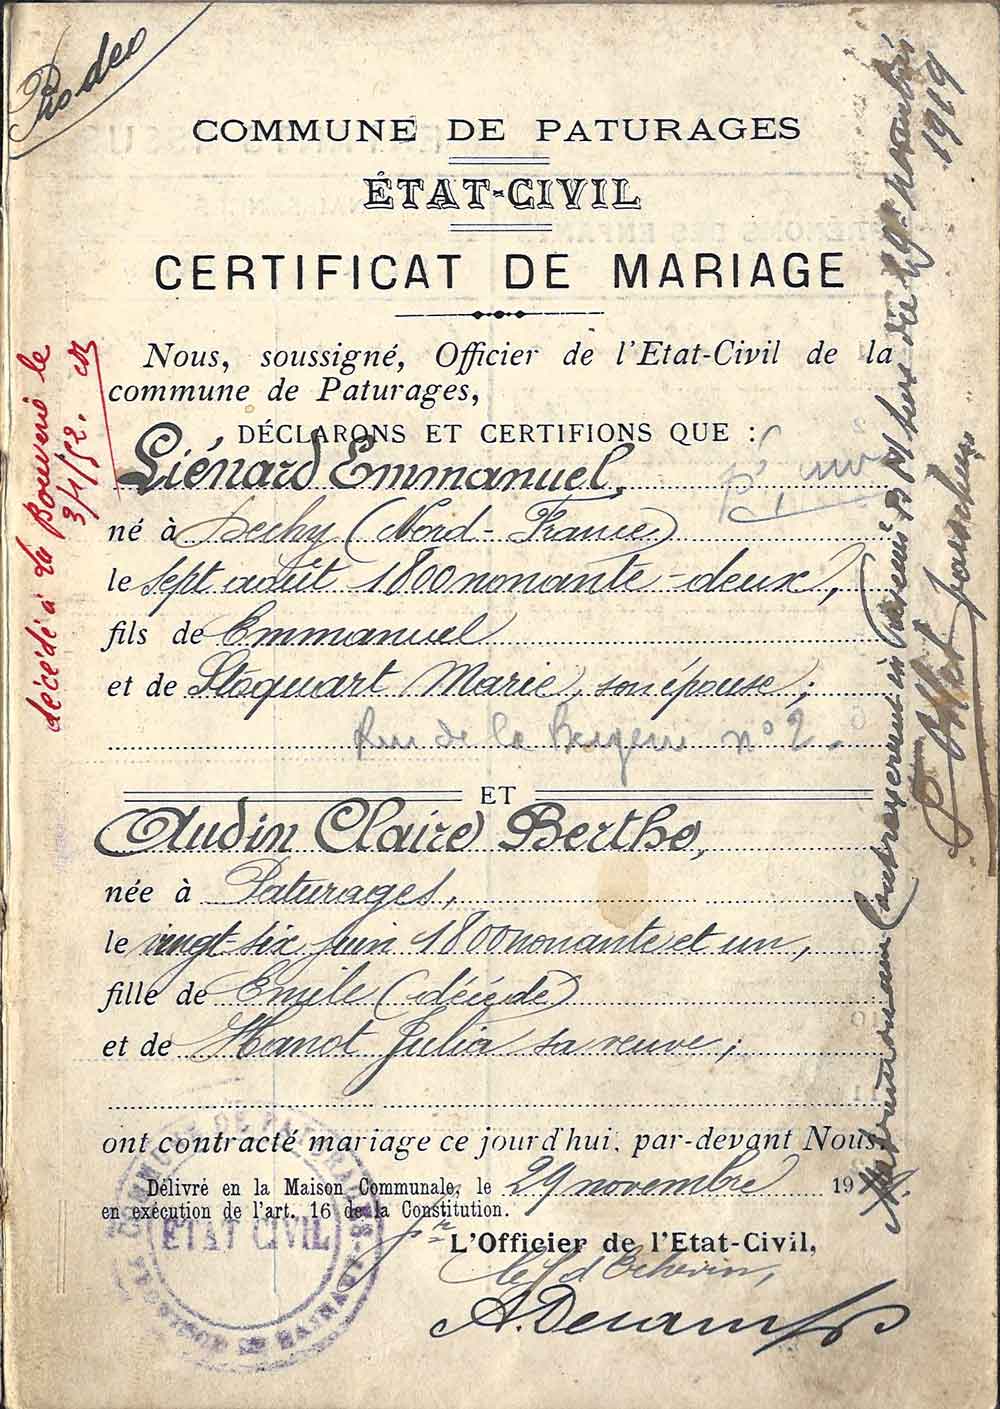 COMMUNE DE PATURAGES
ÉTAT-CIVIL
CERTIFICAT DE MARIAGE
Nous, soussigné, Officier de l'Etat-Civil de la
commune de Paturages,
DÉCLARONS ET CERTIFIONS QUE :
Liénard Emmanuel,
né à Dechy (Nord-France)
le sept août 1800 nonante-deux,
fils de Emmanuel
et de Stoquart Marie, son épouse;
Rue de la n° 2.
ET
Audin Claire Berthe,
née à Paturages,
le vingt-six juin 1800 nonante et un,
fille de Emile (décédé)
et de Hanot Julia sa veuve;
ont contracté mariage ce jourd'hui, par-devant Nous.
Délivré en la Maison Communale, le 29 novembre 19
en exécution de l'art. 16 de la Constitution.
pr L'Officier de l'Etat-Civil,
Echevin,
ETAT CIVIL
COMMUNE DE PATURAGES
PROVINCE DE HAINAUT
décédé à La Bouverie le
3/1/52.
29 novembre
1919